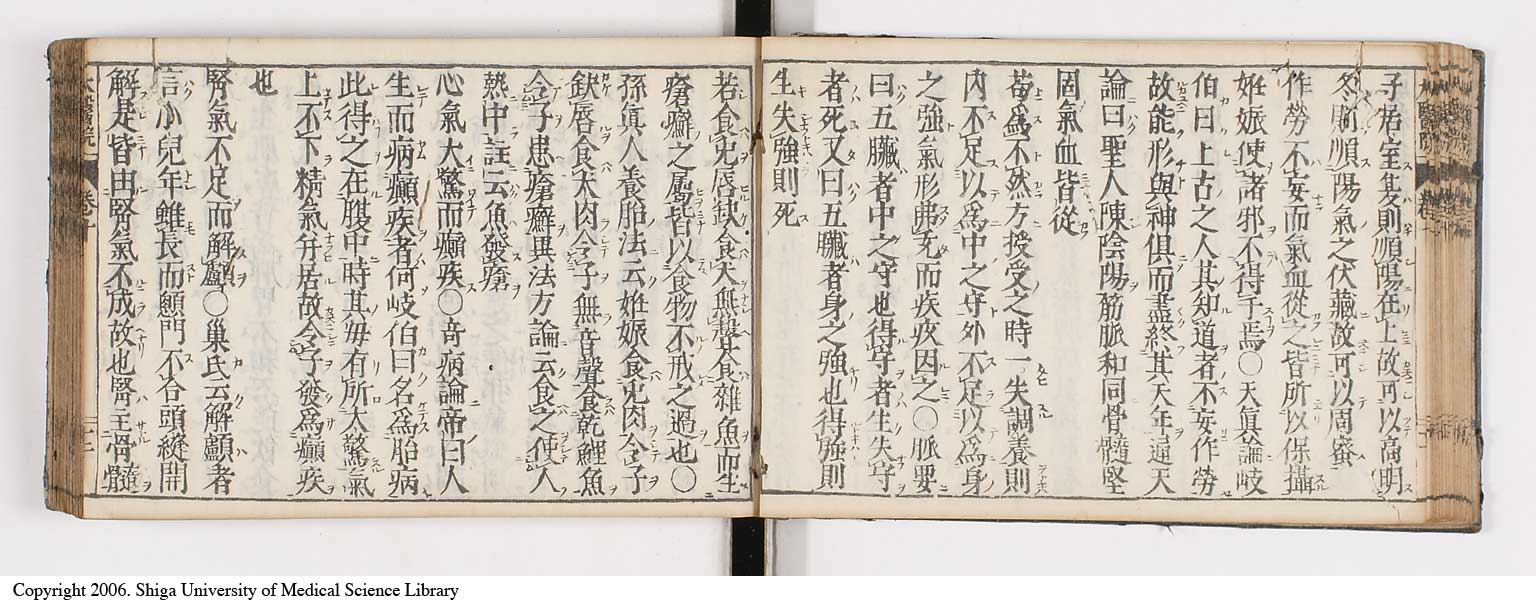 子居室隻則順陽在上故可以高明
冬則順陽氣之伏藏故可以周密
作勞不妄而氣血從之皆所以保攝
姙娠使諸邪不得于焉○天眞論岐
伯曰上古之人其知道者不妄作勞
故能形與神俱而盡終其天年逗天
論曰聖人陳陰陽筋脈和同骨髓堅
固氣血皆從
苟爲不然方授受之時一失調養則
内不足以爲中之守外不足以爲身
之強氣形弗充而疾疢因之○脈要
曰五臟者中之守也得守者生失守
者死又曰五臟者身之強也得強則
生失強則死
若食兎唇缺食犬無聲食雜魚而生
瘡癬之屬皆以食物不戒之過也○
孫眞人養胎法云姙娠食兎肉令子
缺唇食犬肉令子無音聲食乾鯉魚
令子患瘡癬異法方論云食之使人
熱中註云魚發瘡
心氣大驚而癲疾○奇病論帝曰人
生而病癲疾者何岐伯曰名爲胎病
此得之在腹中時其母有所大驚氣
上不下精氣并居故令子發爲癲疾
也
腎氣不足而解顱○巢氏云解顱者
言小兒年雖長而顖門不合頭縫開
解是皆由腎氣不成故也腎主骨髓
Copyright 2006. Shiga University of Medical Science Library